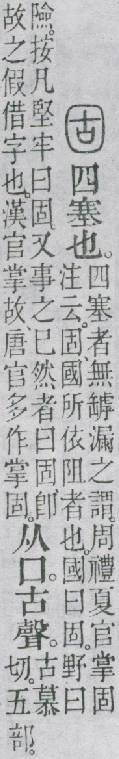 固四塞也。
四塞者無罅漏之謂。周禮夏官掌固
注云。固、國所依阻者也。國曰固。野曰
險。按凡堅牢曰固。又事之已然者曰固卽
故之假借字也。漢官掌故、唐官多作掌固。
从囗。古聲。
古慕
切。五
部。